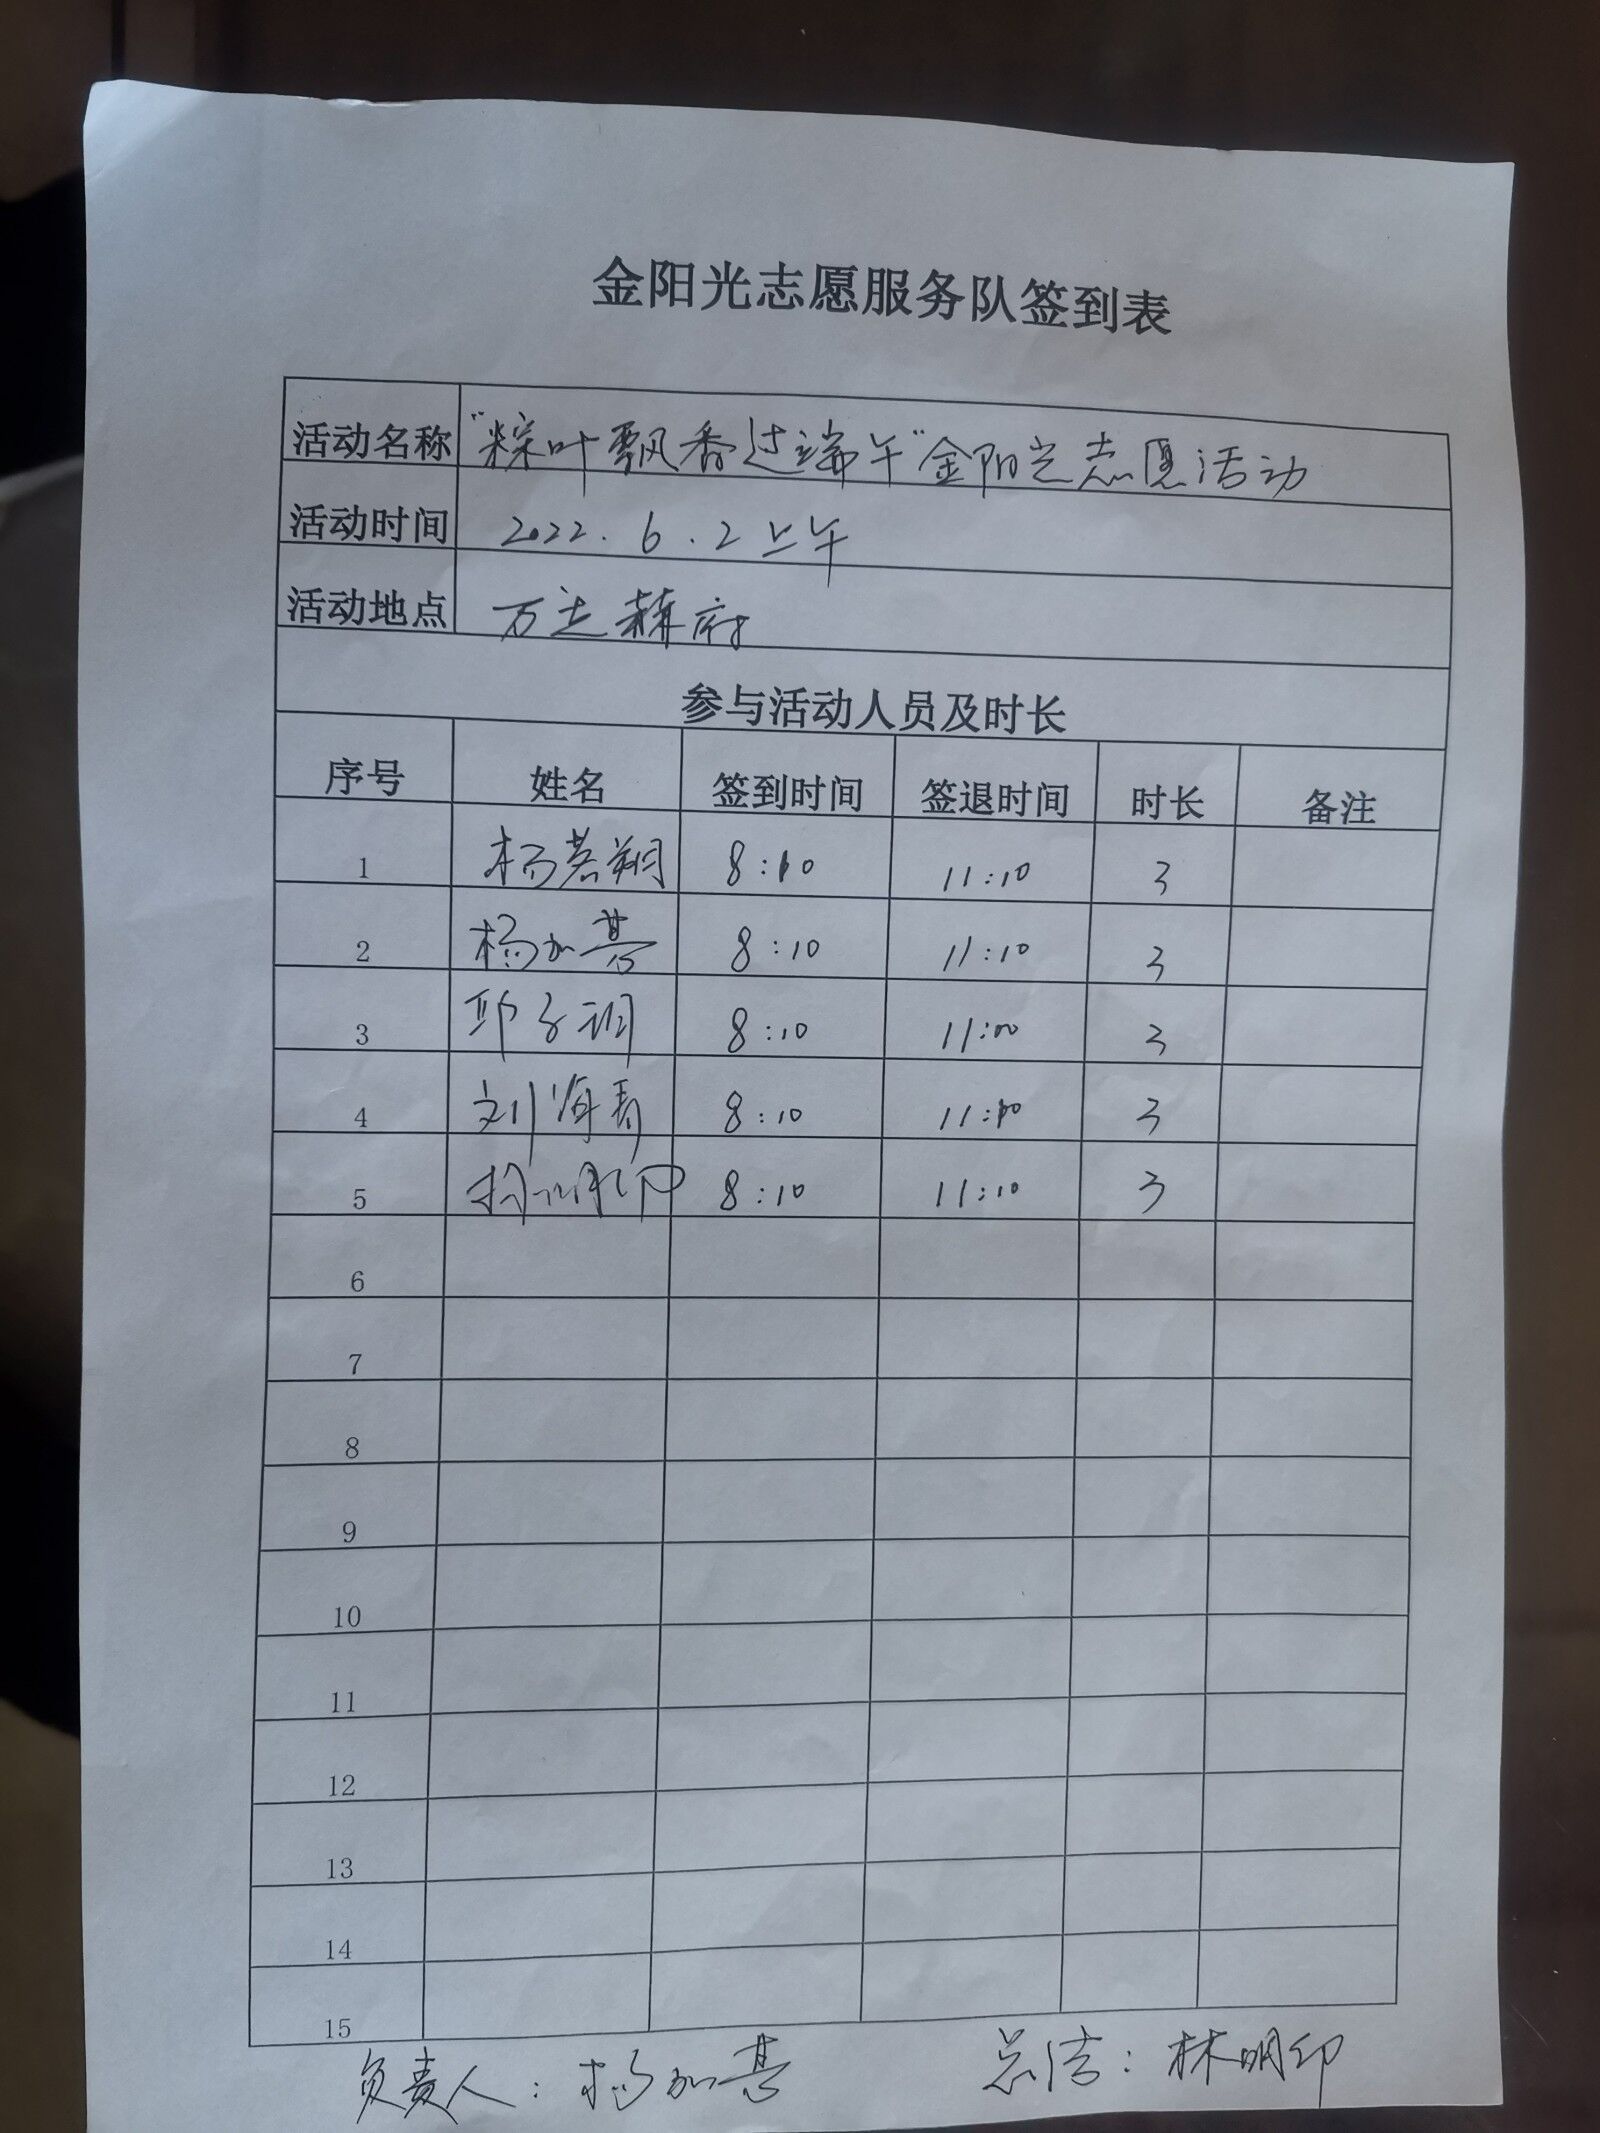 金阳光志愿服务队签到表
活动名称 "粽叶飘香过端午"金阳光志愿活动
活动时间 2022.6.2上午
活动地点 万达 府
参与活动人员及时长
序号 姓名 签到时间 签退时间 时长 备注
1 杨 翔 8:10 11:10 3
2 杨加 8:10 11:10 3
3 子 8:10 11:10 3
4 刘海春 8:10 11:10 3
5 8:10 11:10 3
6
7
8
9
10
11
12
13
14
15
负责人: 杨加 总结: 林明印